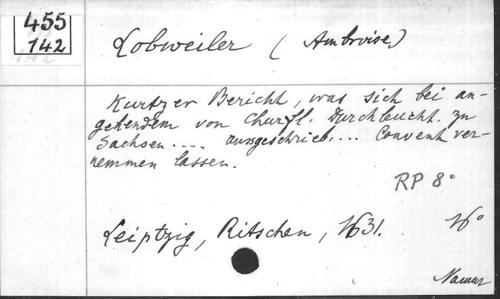 455
142
Lobweiler (Ambroise)
Kurtzer Bericht, was sich bei an-
gehendem von Churfl. Durchleucht. zu
Sachsen.... ausgeschrieb.... Convent ver-
nemmen lassen.
RP 8°
Leiptzig, Ritschen, 1631. 16°
Namur